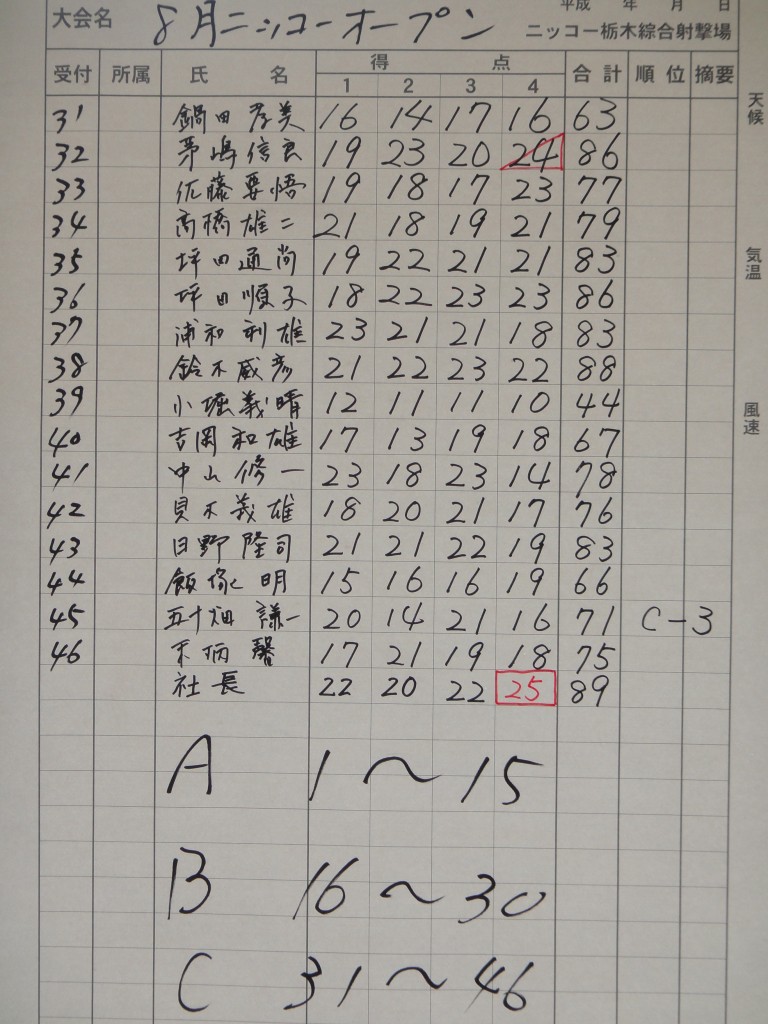 平成 年 月 日
大会名 8月ニッコーオープン ニッコー栃木綜合射撃場
受付 所属 氏 名 得 点 合計 順位 摘要
1 2 3 4
天候
気温
風速
31 鍋田孝美 16 14 17 16 63
32 茅嶋信良 19 23 20 24 86
33 佐藤要悟 19 18 17 23 77
34 高橋雄二 21 18 19 21 79
35 坪田通尚 19 22 21 21 83
36 坪田順子 18 22 23 23 86
37 浦和利雄 23 21 21 18 83
38 鈴木威彦 21 22 23 22 88
39 小堀義晴 12 11 11 10 44
40 吉岡和雄 17 13 19 18 67
41 中山修一 23 18 23 14 78
42 貝木義雄 18 20 21 17 76
43 日野隆司 21 21 22 19 83
44 飯塚明 15 16 16 19 66
45 五十畑謙一 20 14 21 16 71 C-3
46 17 21 19 18 75
社長 22 20 22 25 89
A 1～15
B 16～30
C 31～46